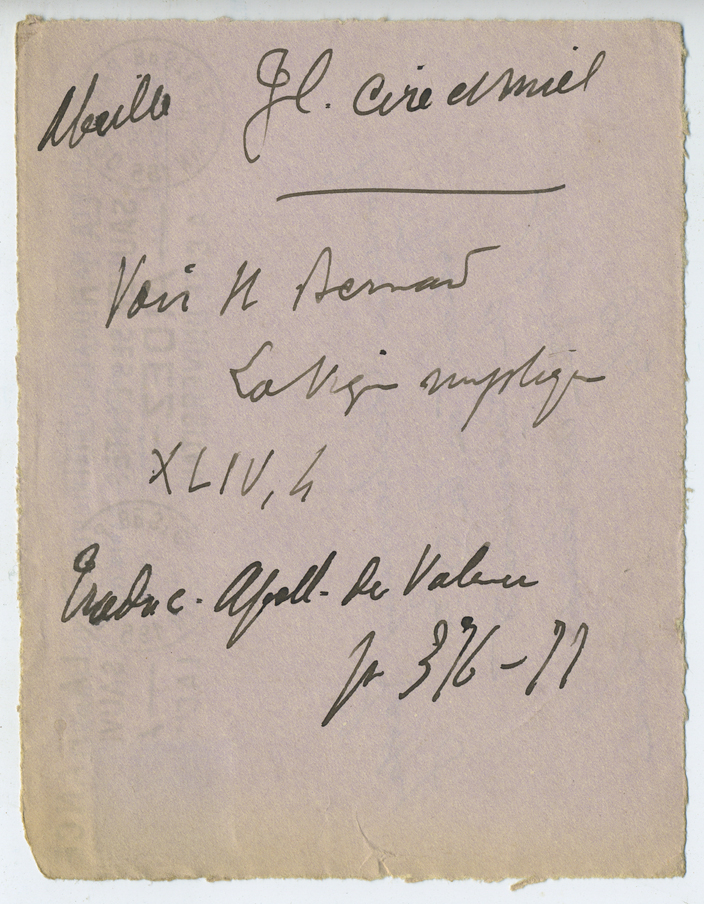 Abeille Fl. cire et miel
Voir St Bernard
La Vigne mystique
XLIV, 4
Traduc. Apoll. de Valence
p 376-77